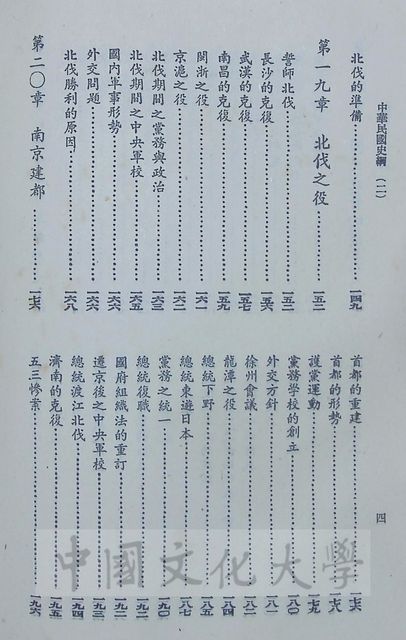 中華民國史綱（二）
四
北伐的準備 一四九
第一九章 北伐之役 一五二
誓師北伐 一五二
長沙的克復 一五五
武漢的克復 一五七
南昌的克復 一五九
閩浙之役 一六一
京滬之役 一六二
北伐期間之黨務與政治 一六三
北伐期間之中央軍校 一六五
國內軍事形勢 一六六
外交問題 一六六
北伐勝利的原因 一六八
第二〇章 南京建都 一七六
首都的重建 一七六
首都的形勢 一七八
護黨運動 一七九
黨務學校的創立 一八〇
外交方針 一八一
徐州會議 一八二
龍潭之役 一八四
總統下野 一八五
總統東遊日本 一八七
黨務之統一 一九〇
總統復職 一九二
國府組織法的重訂 一九二
遷京後之中央軍校 一九三
總統渡江北伐 一九四
濟南的克復 一九五
五三慘案 一九六
中國文化大學